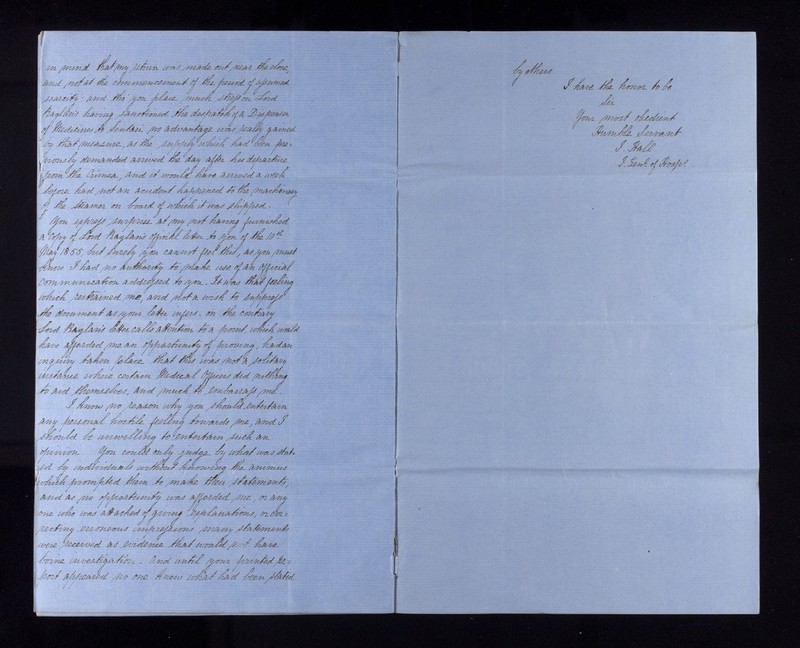 in mind that my return was made out near the close,
and not at the commencement of the period of assumed
scarcity; and tho' you place much stress on Lord
Raglan's having sanctioned the despatch of a Dispenser
of Medicines to Scutari, no advantage was really gained
by that measure, as the supply which had been pre-
viously demanded arrived the day after his departure
from the Crimea, and it would have arrived a week
before had not an accident happened to the machinery
of the Steamer on board of which it was shipped.
You express surprise at my not having furnished
a copy of Lord Raglan's official letter to you of the 10th
May 1855, but surely you cannot feel this, as you must
know I had no authority to make use of an official
communication addressed to you. It was that feeling
which restrained me, and not a wish to suppress
the document as your letter infers. on the contrary
Lord Raglan's letter calls attention to a point which would
have afforded me an opportunity of proving, had an
inquiry taken place that this was not a solitary
instance where certain Medical Officers did nothing
to aid themselves, and much to embarrass me.
I know no reason why you should entertain
any personal hostile feeling towards me, and I
should be unwilling to entertain such an
opinion. You could only judge by what was stat-
ed by individuals without knowing the animus
which prompted them to make their statements,
and as no opportunity was afforded me, or any
one who was attacked of giving explanations, or cor-
recting erroneous impressions many statements
were received as evidence that would not have
borne investigation. And until your printed re-
port appeared no one knew what had been stated
by others
I have the honor to be
Sir
Your most obedient
Humble Servant
J. Hall
I. Genl. of Hospls.